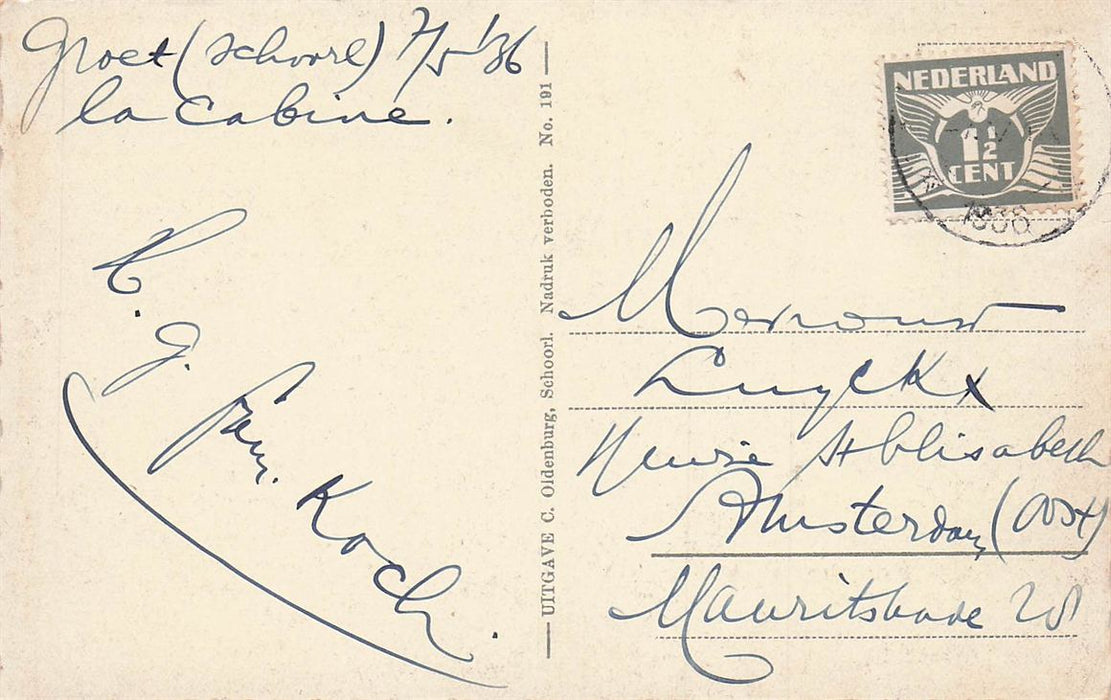 Groet (Schoorl) 7/5 '36
la Cabine.
h. g.
fam. Koch.
UITGAVE C. Oldenburg, Schoorl. Nadruk verboden. No. 191
NEDERLAND
1½
CENT
Mevrouw
Luyckx
St Elisabeth
Amsterdam (Oost)
Mauritskade